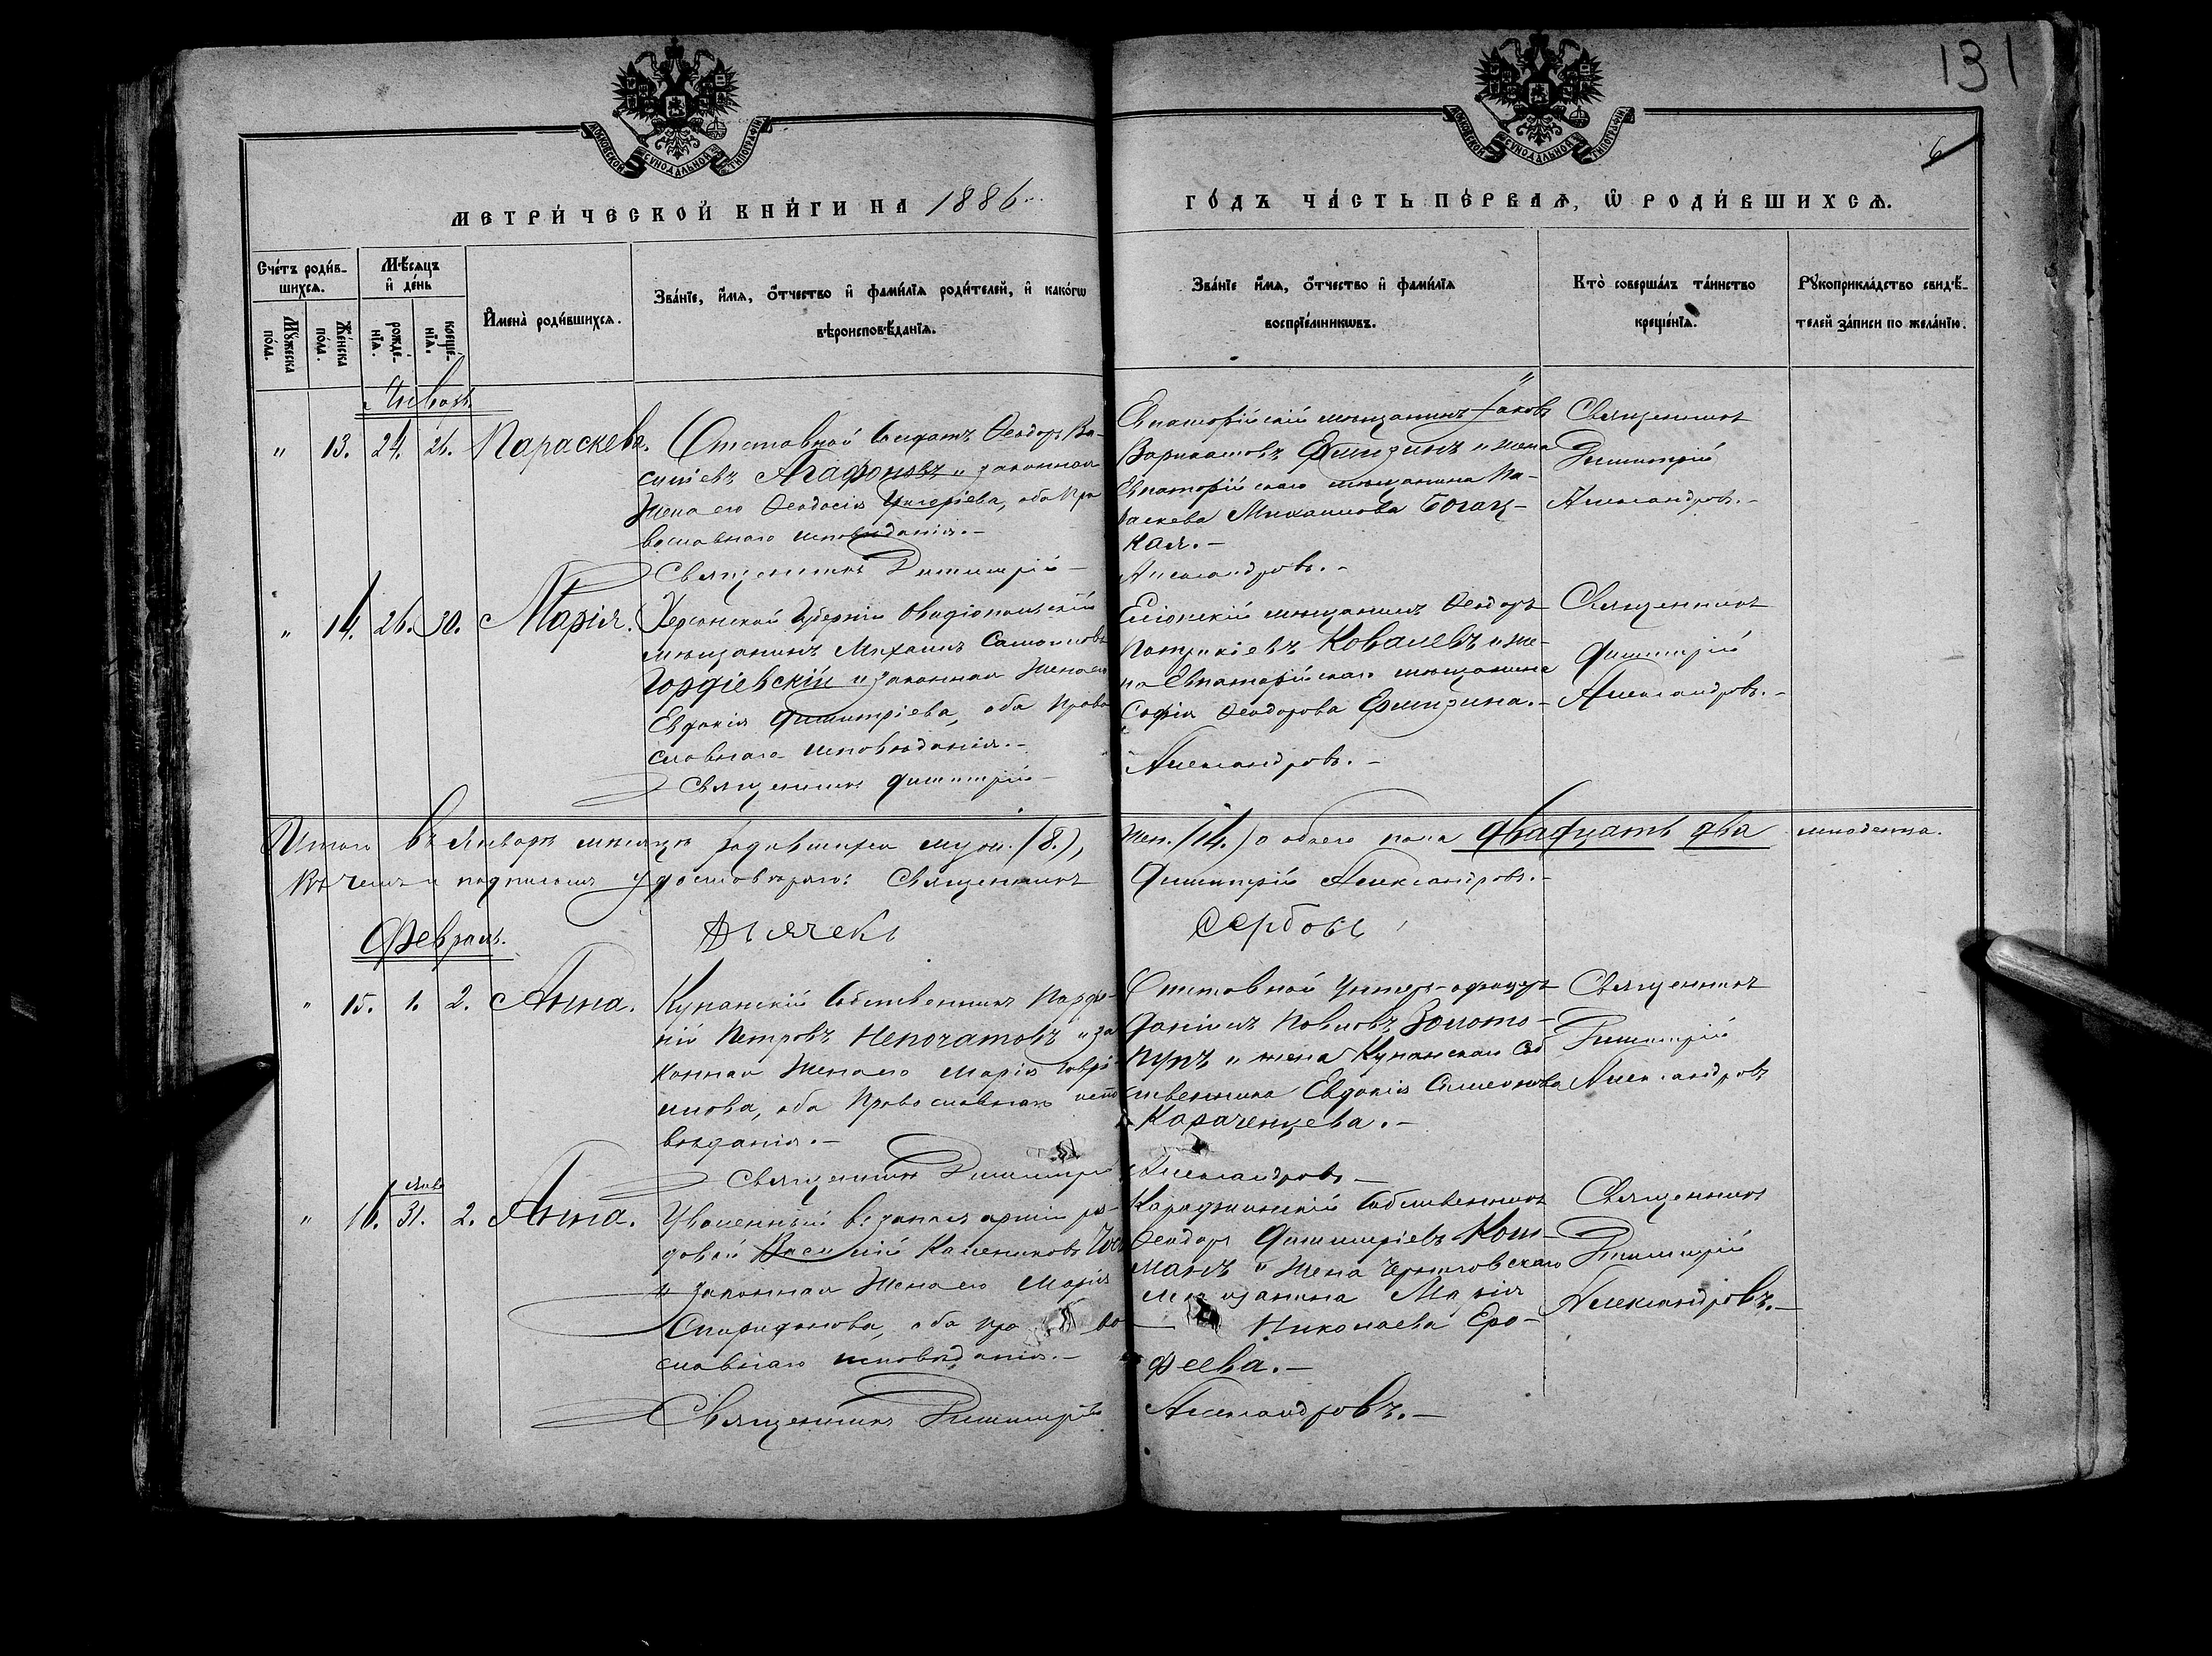 131
6
МОСКОВСКОЙ СѴНОДАЛЬНОЙ ТИПОГРАФІИ
МОСКОВСКОЙ СѴНОДАЛЬНОЙ ТИПОГРАФІИ
МЕТРИ́ЧЕСКОЙ КНИ́ГИ НА 1886
ГО́ДЪ ЧА́СТЬ ПЕ́РВАѦ, Ѡ РОДИ́ВШИХСѦ.
Сче́тъ роди́в-
шихсѧ.
Мꙋ́жеска по́ла.
Же́нска по́ла.
Мѣ́сѧцъ и де́нь
рожде́-нїѧ.
креще́-нїѧ.
Имена̀ роди́вшихсѧ.
Зва́нїе, и́мѧ, о́тчество и фами́лїѧ роди́телей, и како́гѡ
вѣроисповѣ́данїѧ.
Зва́нїе и́мѧ, о́тчество и фами́лїѧ
воспрїе́мникѡвъ.
Кто̀ соверша́лъ та́инство
креще́нїѧ.
Рꙋкоприкла́дство свидѣ́-
телей за́писи по жела́нїю.
Январь.
" 13. 24. 26. Параскева.
Отставной Солдатъ Ѳеодоръ Ва-
силіевъ Агафоновъ и законная
жена его Ѳеодосія Григоріева, оба Пра
вославнаго исповѣданія.-
Священникъ Димитрій
Евпаторійскій мѣщанинъ Іаковъ
Филизинъ и жена
Евпаторійскаго мѣщанина Па-
раскева Михаилова Богац-
кая.-
Александровъ.-
Священникъ
Димитрій
Александровъ.-
" 14. 26. 30. Марія.
Херсонской Губерніи Овидіопольскій
мѣщанинъ Михаилъ Самоиловъ
Гордіевскій и законная жена его
Евдокія Димитріева, оба Право
славнаго исповѣданія.-
Священникъ Димитрій
мѣщанинъ Ѳеодоръ
Патрикіевъ Ковалевъ и же-
на Евпаторійскаго мѣщанина
Софія Ѳеодорова Филизина.-
Александровъ.-
Священникъ
Димитрій
Александровъ.-
Итого въ Январѣ мѣсяцѣ родившихся муж. (8.),
жен. (14.) а обоего пола двадцать два младенца.
въ чемъ и подписомъ удостовѣряю: Священникъ
Димитрій Александровъ.-
Февраль.
Дьячекъ
Сербовъ
" 15. 1. 2. Анна.
Купанскій Собственникъ Парфе-
ній Петровъ Непочатовъ и за
конная жена его Марія Гаврі
илова, оба Православнаго испо
вѣданія.-
Священникъ Димитрій
Отставной Унтеръ-офицеръ
Даніилъ Павловъ Золото-
пупъ и жена Купанскаго Соб
ственника Евдокія Симеонова
Караченцева.-
Александровъ-
Священникъ
Димитрій
Александровъ
Янв.
" 16. 31. 2. Анна.
Уволенный въ запасъ арміи ря-
довой Василій Калениковъ
и законная жена его Марія
Спиридонова, оба пра во
славнаго исповѣданія.-
Священникъ Димитрій
Караджинскій Собственникъ
Ѳеодоръ Димитріевъ Кош-
манъ и жена Черниговскаго
мѣщанина Марія
Николаева Еро-
феева.-
Александровъ.-
Священникъ
Димитрій
Александровъ.-